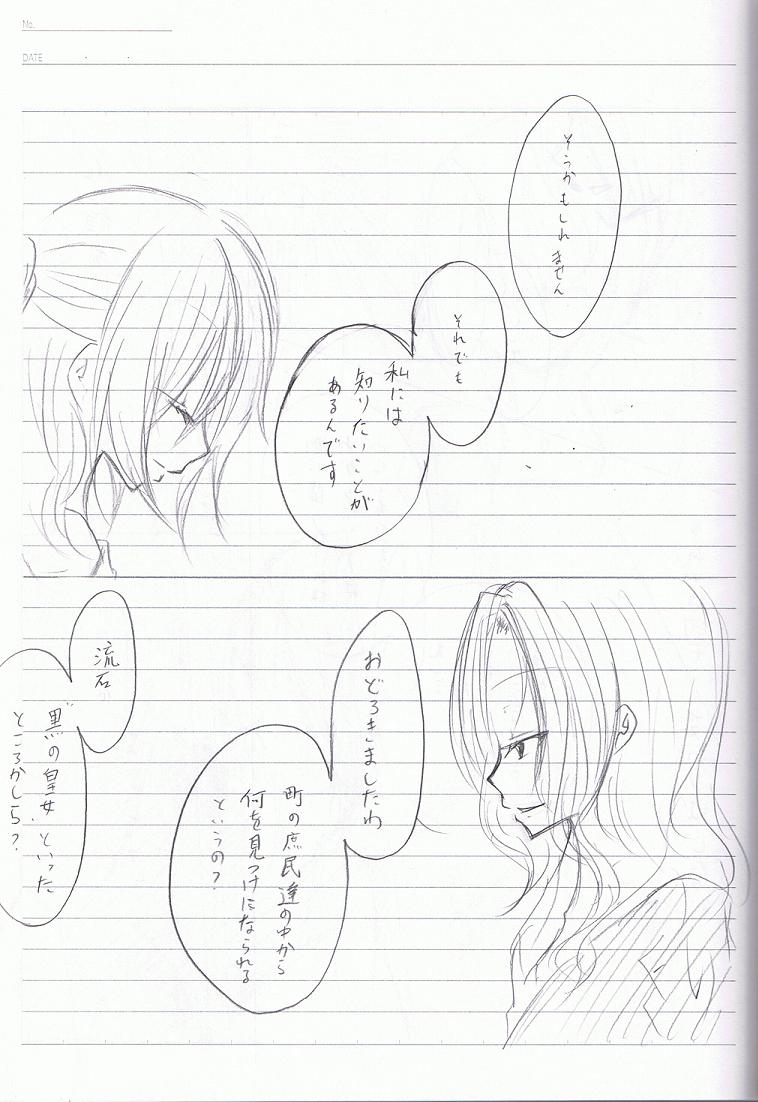 No.
DATE
そうかもしれません
それでも
私には
知りたいことが
あるんです
おどろきましたわ
町の庶民達の中から
何を見つけになられる
というの？
流石
"黒の皇女"といった
ところかしら？